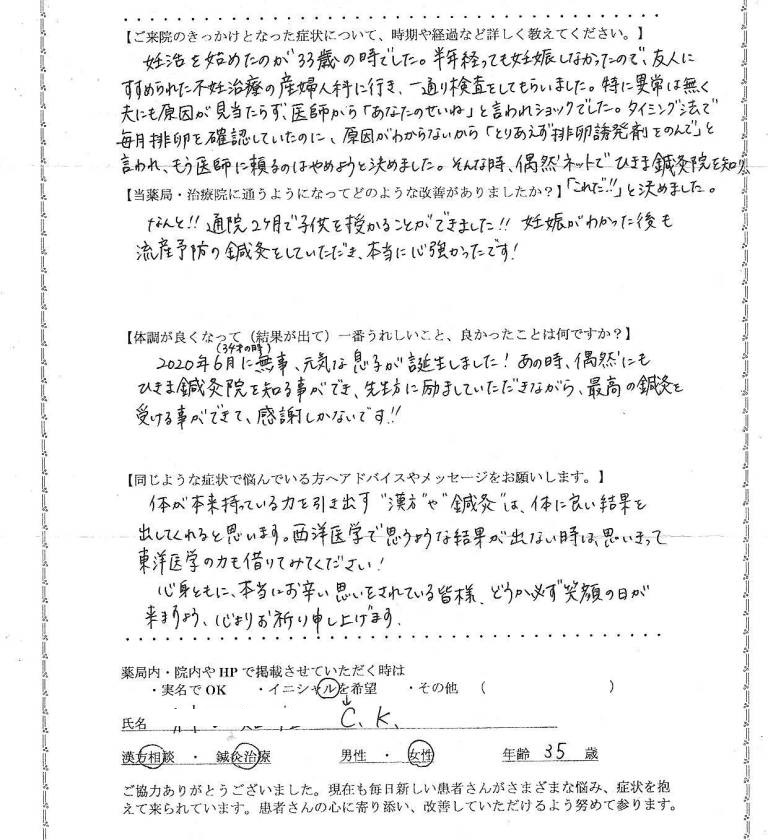 【ご来院のきっかけとなった症状について、時期や経過など詳しく教えてください。】
妊活を始めたのが33歳の時でした。半年経っても妊娠しなかったので、友人に
すすめられた不妊治療の産婦人科に行き、一通り検査をしてもらいました。特に異常は無く
夫にも原因が見当たらず、医師から「あなたのせいね」と言われショックでした。タイミング法で
毎月排卵を確認していたのに、原因がわからないから「とりあえず排卵誘発剤をのんで」と
言われ、もう医師に頼るのはやめようと決めました。そんな時、偶然ネットでひきま鍼灸院を知り
【当薬局・治療院に通うようになってどのような改善がありましたか?】「これだ!!」と決めました。
なんと!! 通院2ヶ月で子供を授かることができました!! 妊娠がわかった後も
流産予防の鍼灸をしていただき、本当に心強かったです!
【体調が良くなって(結果が出て)一番うれしいこと、良かったことは何ですか?】
(34才の時)
2020年6月に無事、元気な息子が誕生しました! あの時、偶然にも
ひきま鍼灸院を知る事ができ、先生方に励ましていただきながら、最高の鍼灸を
受ける事ができて、感謝しかないです!!
【同じような症状で悩んでいる方へアドバイスやメッセージをお願いします。】
体が本来持っている力を引き出す“漢方”や“鍼灸”は、体に良い結果を
出してくれると思います。西洋医学で思うような結果が出ない時は、思いきって
東洋医学の力も借りてみてください!
心身ともに、本当にお辛い思いをされている皆様、どうか必ず笑顔の日が
来ますよう、心よりお祈り申し上げます。
薬局内・院内やHPで掲載させていただく時は
・実名でOK ・イニシャルを希望 ・その他 ( )
氏名 C.K.
漢方相談 ・ 鍼灸治療 男性 ・ 女性 年齢 35 歳
ご協力ありがとうございました。現在も毎日新しい患者さんがさまざまな悩み、症状を抱
えて来られています。患者さんの心に寄り添い、改善していただけるよう努めて参ります。